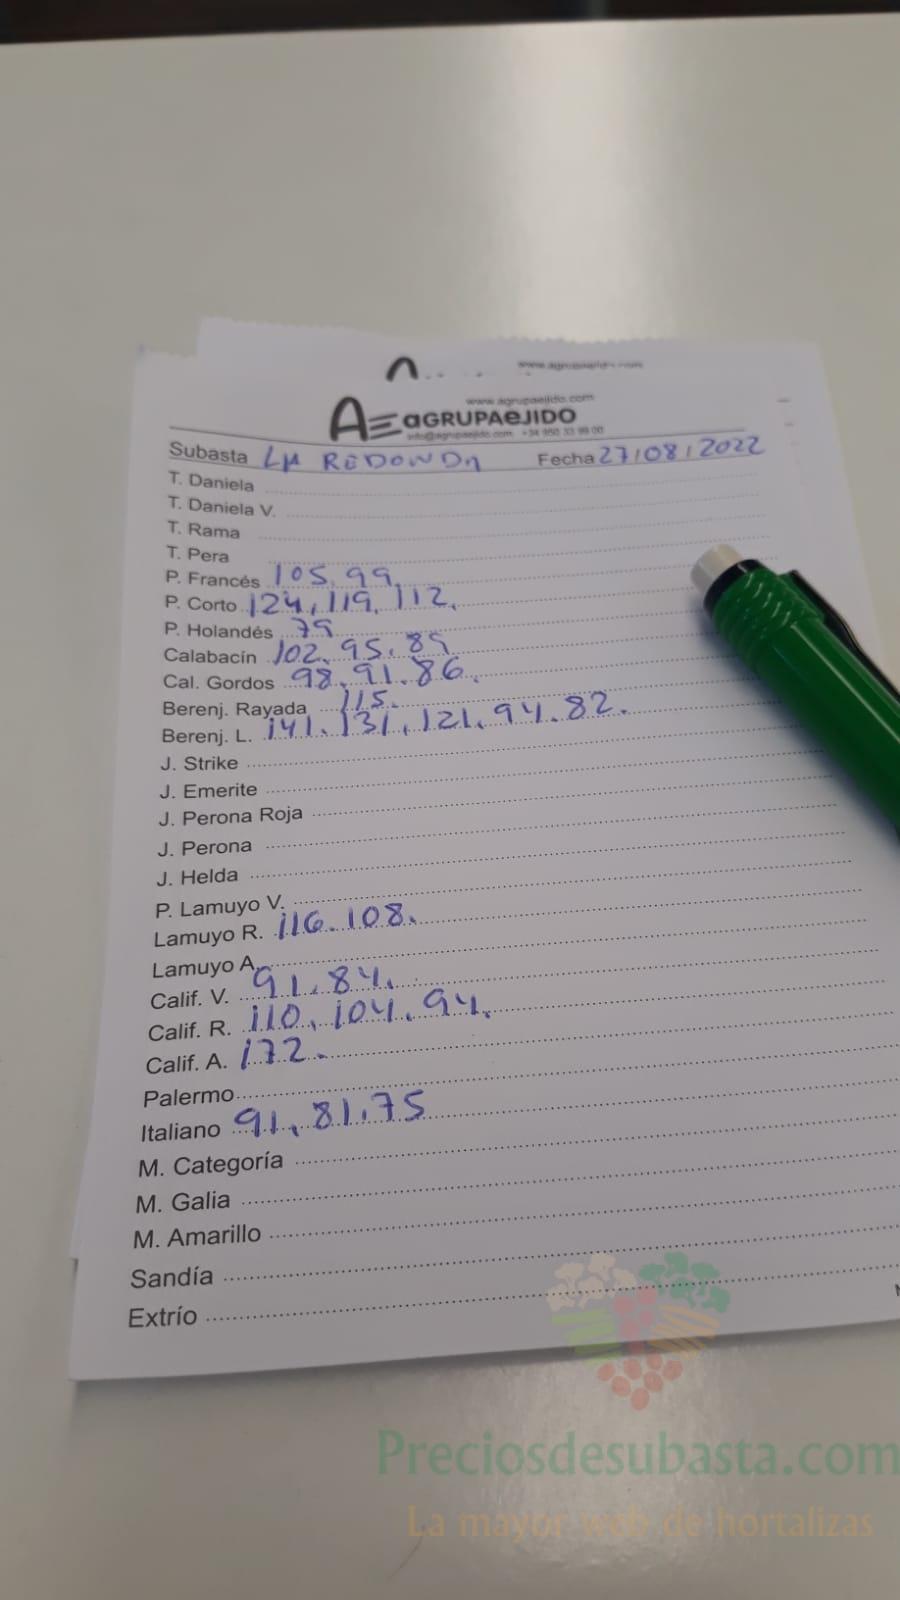 www.agrupaejido.com
www.agrupaejido.com
AE aGRUPAeJIDO
info@agrupaejido.com +34 950 33 99 00
Subasta LA REDONDA Fecha 27/08/2022
T. Daniela
T. Daniela V.
T. Rama
T. Pera
P. Francés 105, 99.
P. Corto 124, 119, 112.
P. Holandés 79
Calabacín 102, 95, 89
Cal. Gordos 98, 91, 86.
Berenj. Rayada 115.
Berenj. L. 141, 131, 121, 94, 82.
J. Strike
J. Emerite
J. Perona Roja
J. Perona
J. Helda
P. Lamuyo V.
Lamuyo R. 116, 108.
Lamuyo A.
Calif. V. 91, 84.
Calif. R. 110, 104, 94.
Calif. A. 172.
Palermo
Italiano 91, 81, 75
M. Categoría
M. Galia
M. Amarillo
Sandía
Extrío
Preciosdesubasta.com
La mayor web de hortalizas